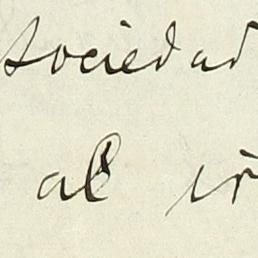 sociedad
al ir